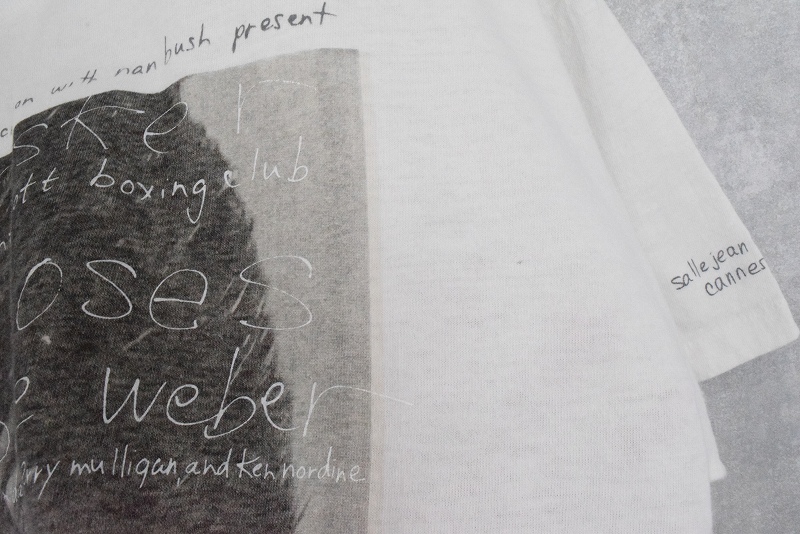 on with nan bush present
sker
tt boxing club
oses
weber
rry mulligan, and ken nordine
salle jean
cannes